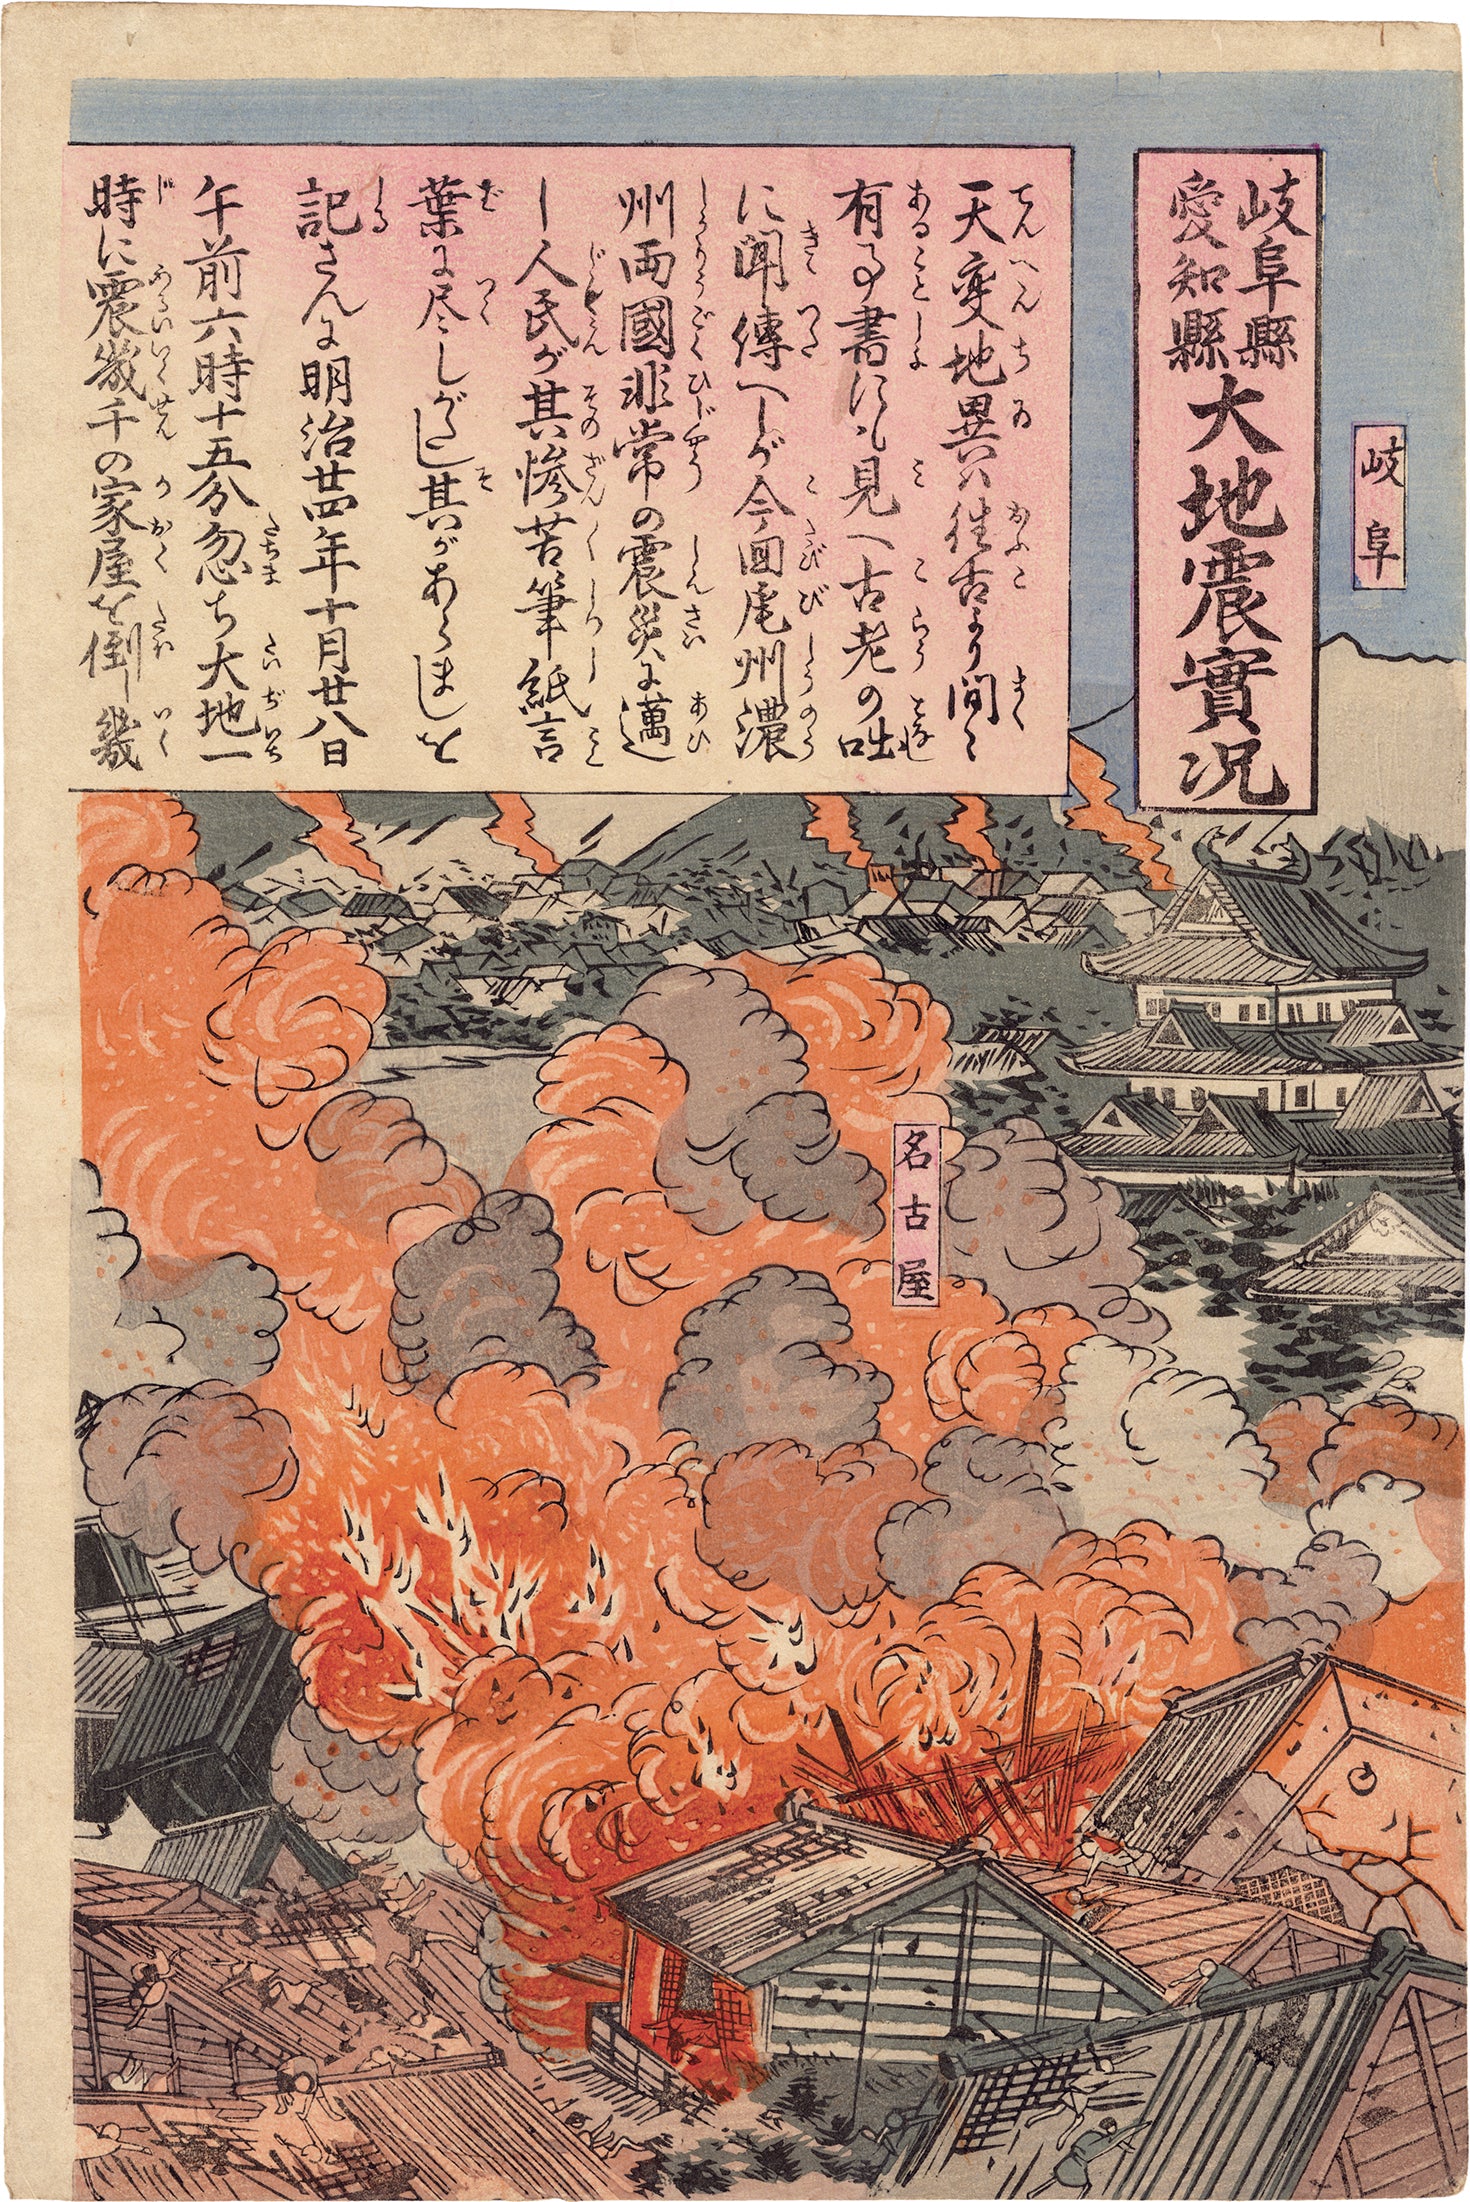 岐阜縣
愛知縣
大地震實况
岐阜
天変地異ハ往古より間々
有る事書にも見へ古老の咄
に聞傳へしが今回尾州濃
州両國非常の震災に遇
し人民が其惨苦筆紙言
葉に尽しがたし其があらましを
記さんに明治廿四年十月廿八日
午前六時十五分忽ち大地一
時に震幾千の家屋を倒し幾
名古屋